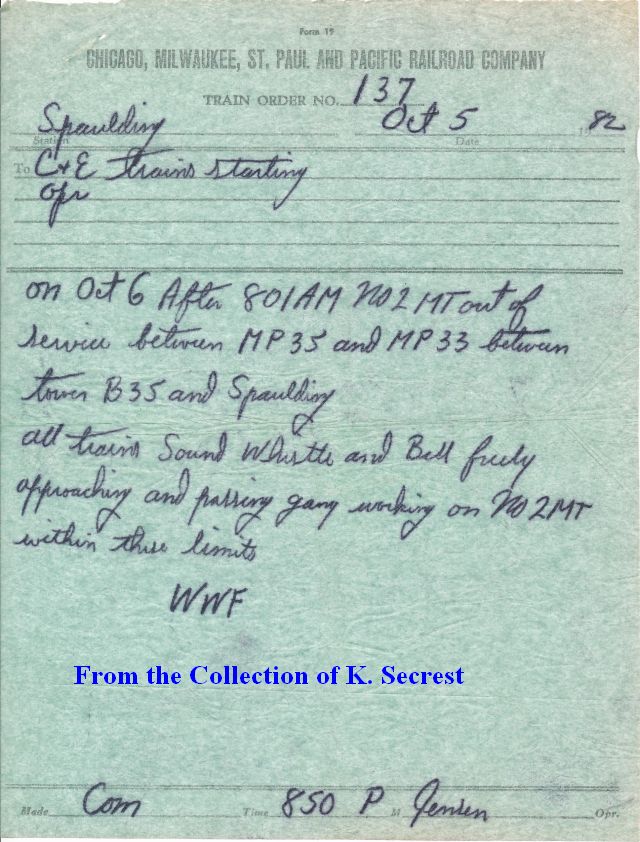 Form 19
CHICAGO, MILWAUKEE, ST. PAUL AND PACIFIC RAILROAD COMPANY
TRAIN ORDER NO. 137
Spaulding Oct 5 1982
Station Date
To C+E trains starting
Opr
on Oct 6 After 801AM No 2 MT out of
service between MP35 and MP33 between
tower B35 and Spaulding
all trains Sound Whistle and Bell freely
approaching and passing gang working on No 2 MT
within these limits
WWF
From the Collection of K. Secrest
Made Com Time 850 P M Jensen Opr.